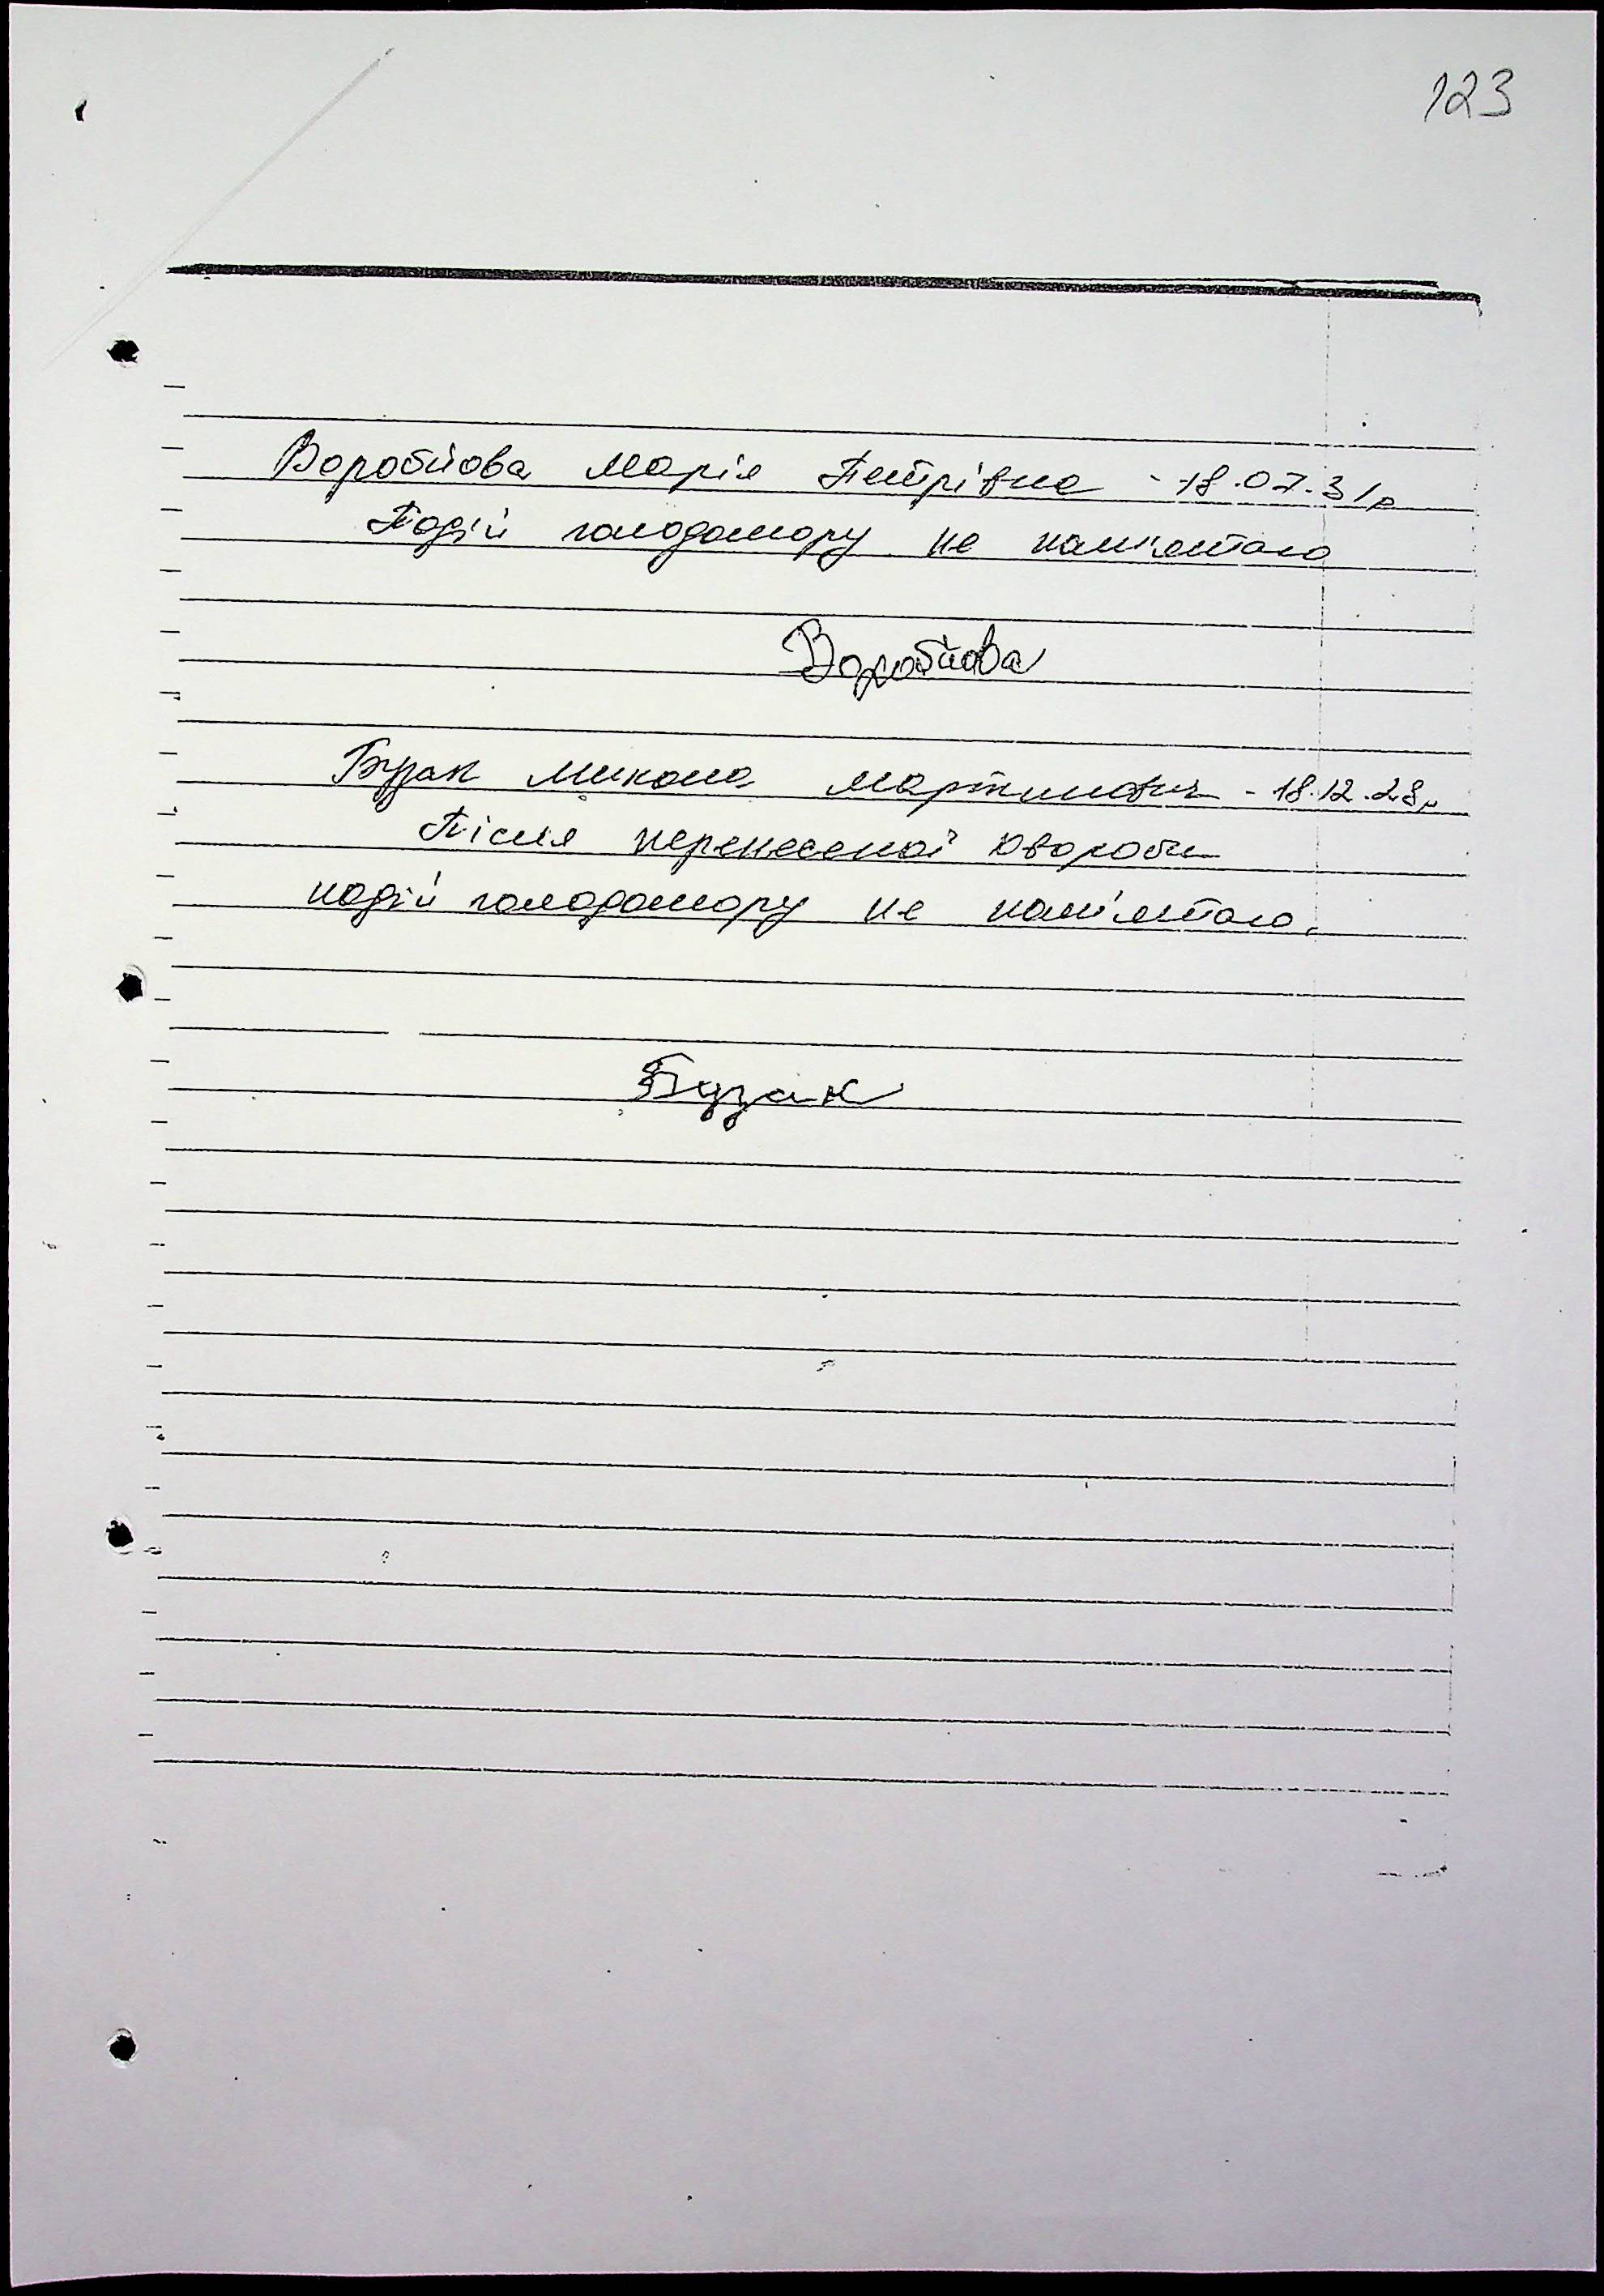 123
Воробйова Марія Петрівна - 18.07.31р
Подій голодомору не пам'ятаю
Воробйова
Бузак Микола Мартинович - 18.12.28р
Після перенесеної хвороби
подій голодомору не пам'ятаю.
Бузак